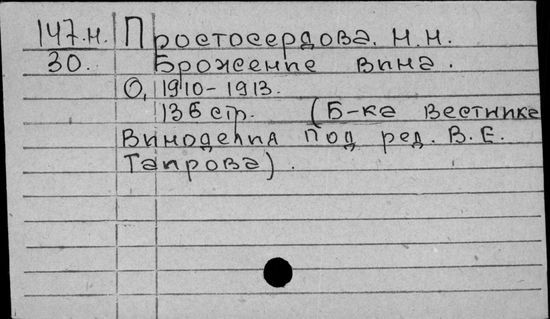 147.н. Простосердова. Н.Н.
30. Брожение вина.
О, 1910-1913.
136 стр. (Б-ка Вестника
Виноделия под ред. В.Е.
Таирова).